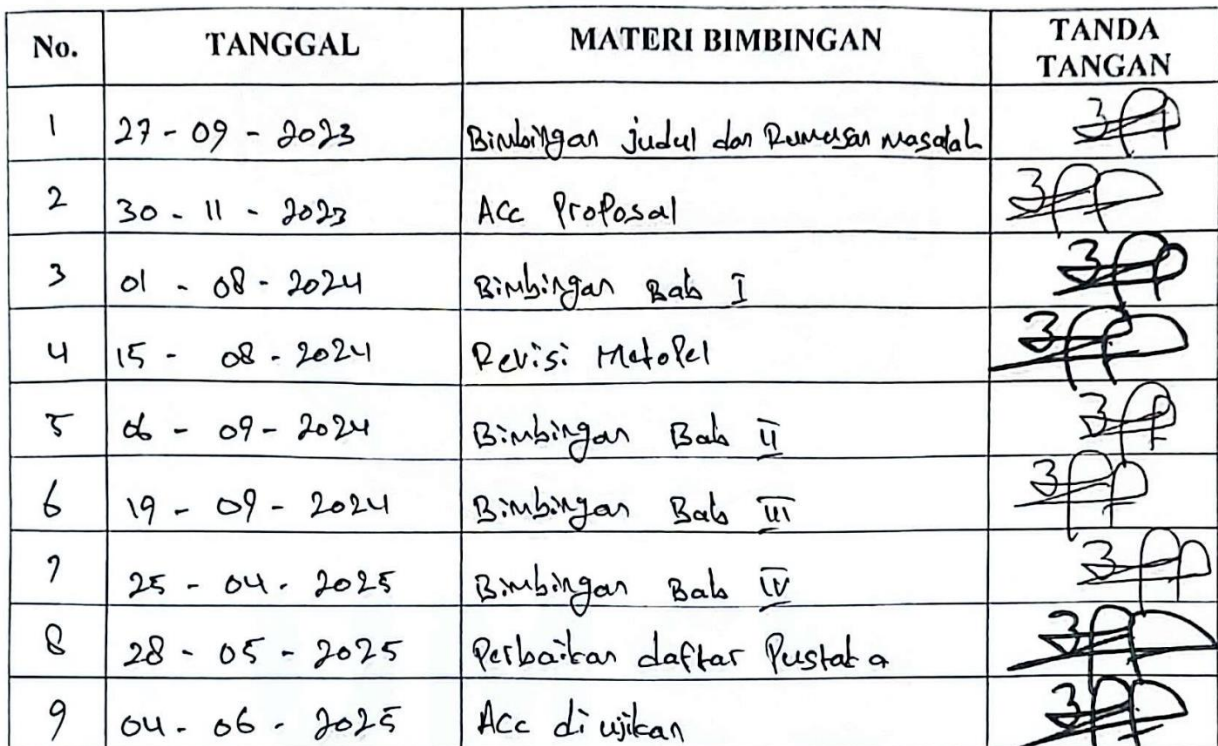 No. TANGGAL MATERI BIMBINGAN TANDA TANGAN
1 27 - 09 - 2023 Bimbingan judul dan Rumusan masalah
2 30 - 11 - 2023 Acc Proposal
3 01 - 08 - 2024 Bimbingan Bab I
4 15 - 08 - 2024 Revisi Metopel
5 06 - 09 - 2024 Bimbingan Bab II
6 19 - 09 - 2024 Bimbingan Bab III
7 25 - 04 - 2025 Bimbingan Bab IV
8 28 - 05 - 2025 Perbaikan daftar Pustaka
9 04 - 06 - 2025 Acc di ujikan